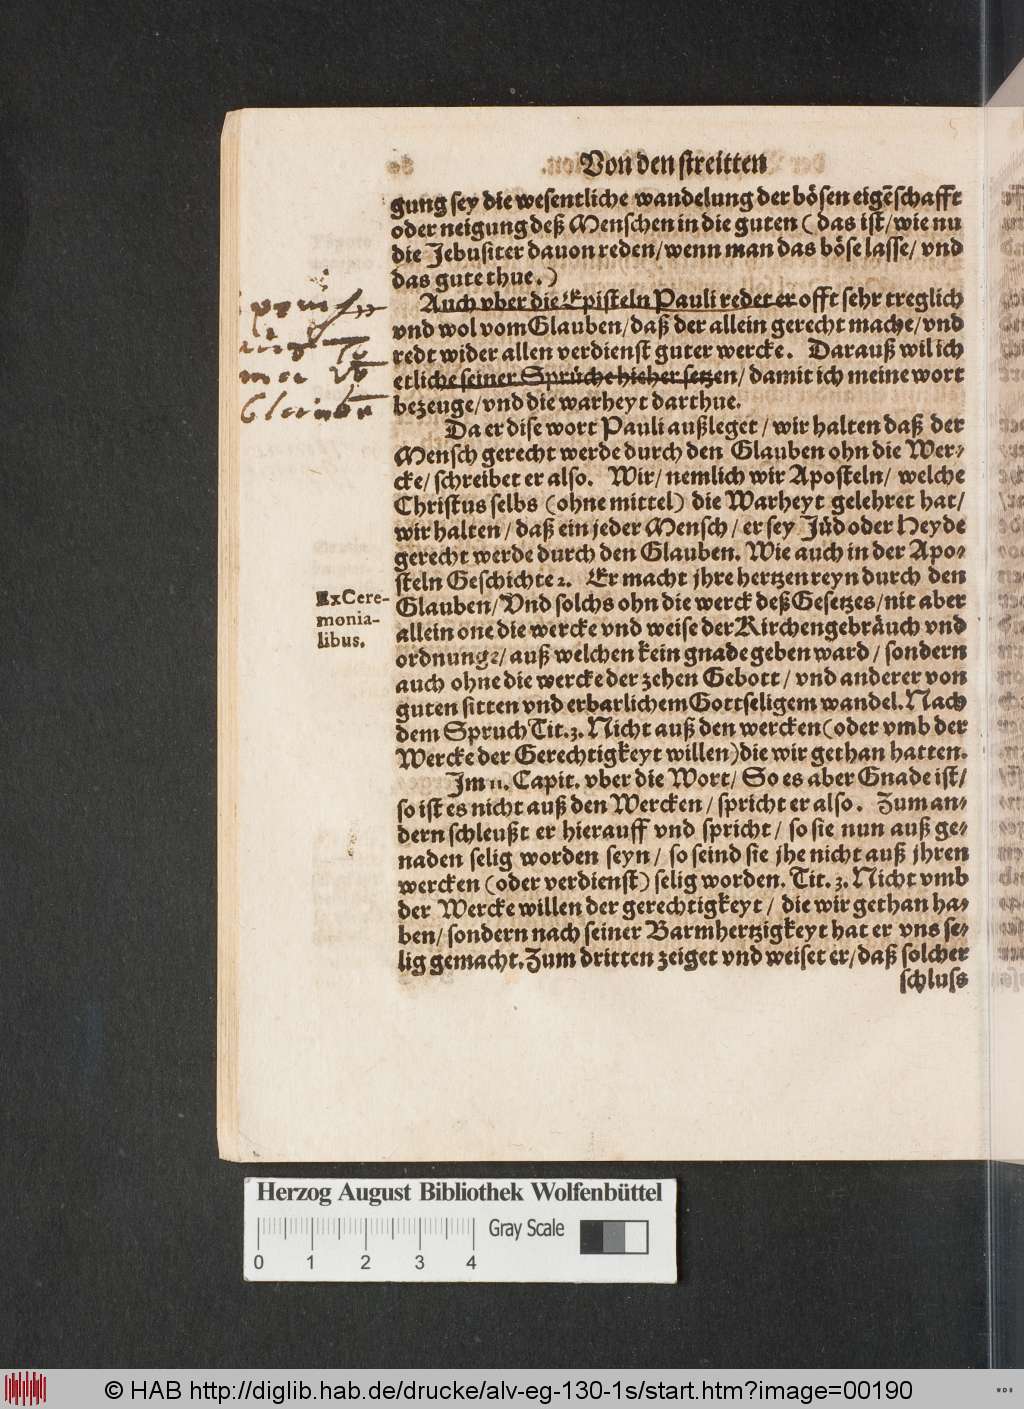 Von den streitten
gung sey die wesentliche wandelung der bösen eigēschafft
oder neigung deß Menschen in die guten ( das ist/ wie nu
die Jebusiter dauon reden/ wenn man das böse lasse/ vnd
das gute thue. )
Auch vber die Episteln Pauli redet er offt sehr treglich
vnd wol vom Glauben/ daß der allein gerecht mache/ vnd
redt wider allen verdienst guter wercke. Darauß wil ich
etliche seiner Sprüche hieher setzen/ damit ich meine wort
bezeuge/ vnd die warheyt darthue.
Da er dise wort Pauli außleget / wir halten daß der
Mensch gerecht werde durch den Glauben ohn die Wer⸗
cke/ schreibet er also. Wir/ nemlich wir Aposteln/ welche
Christus selbs (ohne mittel) die Warheyt gelehret hat/
wir halten / daß ein jeder Mensch / er sey Jüd oder Heyde
gerecht werde durch den Glauben. Wie auch in der Apo⸗
steln Geschichte 2. Er macht jhre hertzen reyn durch den
Glauben/ Vnd solchs ohn die werck deß Gesetzes/ nit aber
allein one die wercke vnd weise der Kirchengebräuch vnd
ordnung/ auß welchen kein gnade geben ward / sondern
auch ohne die wercke der zehen Gebott / vnd anderer von
guten sitten vnd erbarlichem Gottseligem wandel. Nach
dem Spruch Tit. 3. Nicht auß den wercken (oder vmb der
Wercke der Gerechtigkeyt willen) die wir gethan hatten.
Im 11. Capit. vber die Wort/ So es aber Gnade ist/
so ist es nicht auß den Wercken / spricht er also. Zum an⸗
dern schleußt er hierauff vnd spricht / so sie nun auß ge⸗
naden selig worden seyn / so seind sie jhe nicht auß jhren
wercken (oder verdienst) selig worden. Tit. 3. Nicht vmb
der Wercke willen der gerechtigkeyt / die wir gethan ha⸗
ben/ sondern nach seiner Barmhertzigkeyt hat er vns se⸗
lig gemacht. Zum dritten zeiget vnd weiset er/ daß solcher
schluss
Ex Cere-
monia-
libus.
Herzog August Bibliothek Wolfenbüttel
Gray Scale
0 1 2 3 4
© HAB http://diglib.hab.de/drucke/alv-eg-130-1s/start.htm?image=00190